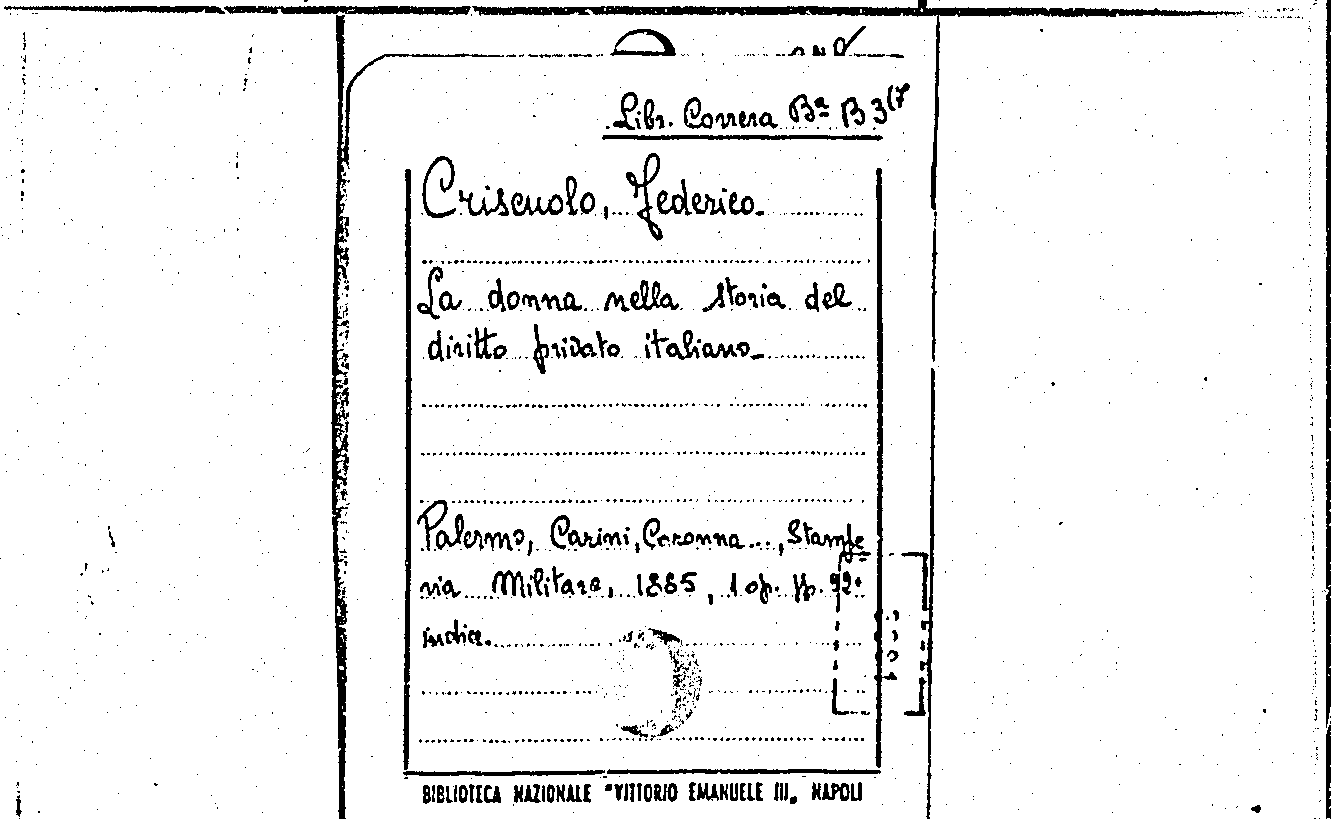 Libr. Correra Bª B 3(7
Criscuolo, Federico.
La donna nella storia del
diritto privato italiano.
Palermo, Carini, Coronna..., Stampe
ria Militare, 1885, 1 op. pp. 92.
indice.
BIBLIOTECA NAZIONALE "VITTORIO EMANUELE III„ NAPOLI